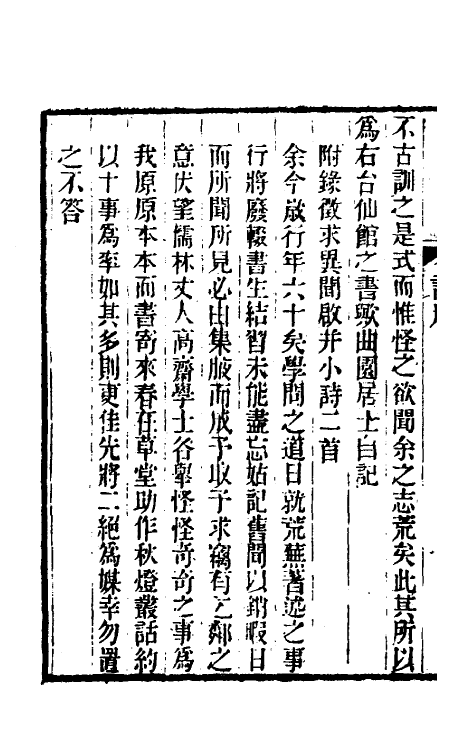 不古訓之是式而惟怪之欲聞余之志荒矣此其所以
爲右台仙館之書歟曲園居士自記
附錄徵求異聞啟并小詩二首
余今歲行年六十矣學問之道日就荒蕪著述之事
行將廢輟書生結習未能盡忘姑記舊聞以銷暇日
而所聞所見必由集腋而成予取予求竊有乞鄰之
意伏望儒林丈人高齋學士各舉怪怪奇奇之事爲
我原原本本而書寄來春在草堂助作秋燈叢話約
以十事爲率如其多則更佳先將二絕爲媒幸勿置
之不答